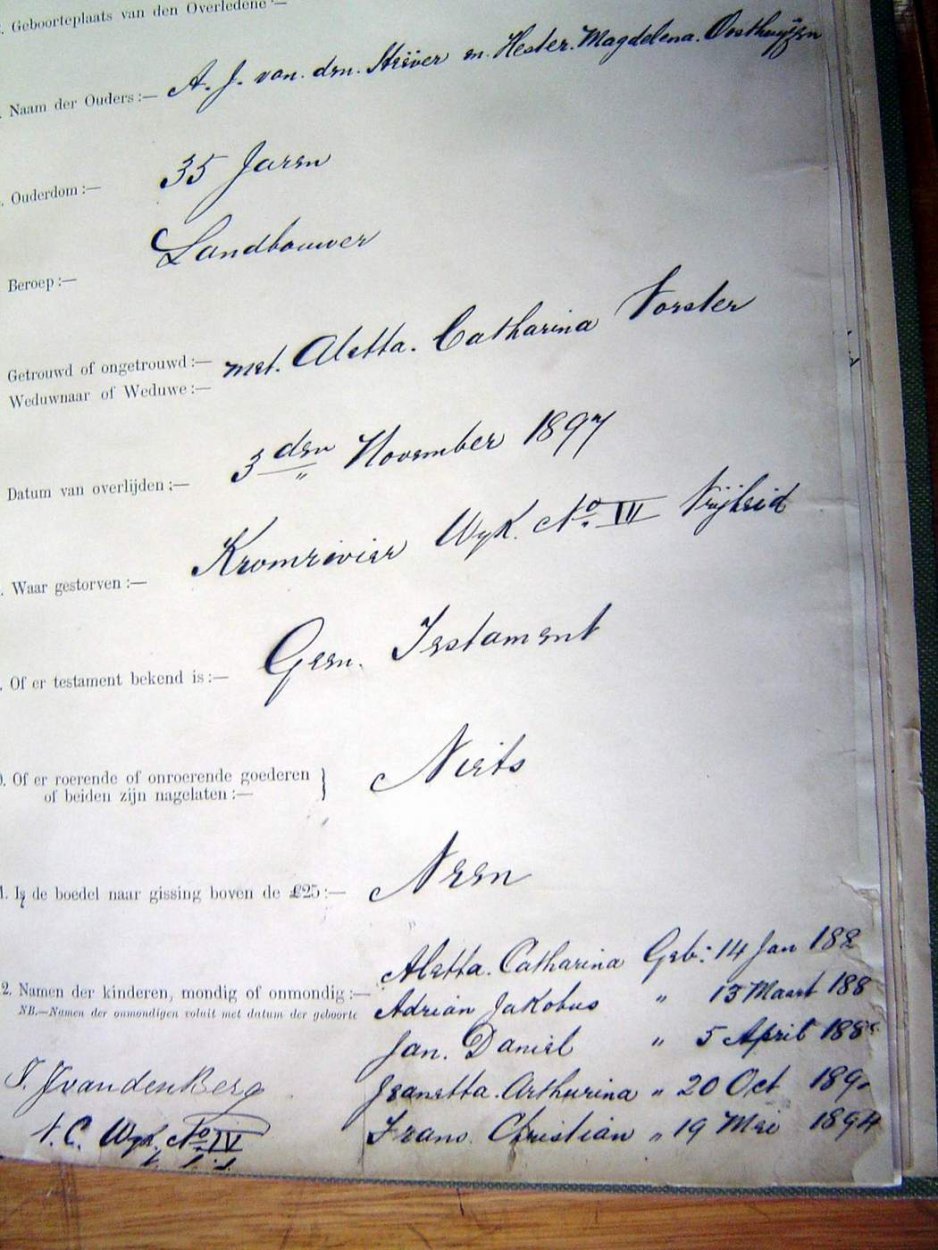 . Geboorteplaats van den Overledene :—
. Naam der Ouders :— A. J. van. den. Heever en. Hester. Magdelena. Oosthuijzen
. Ouderdom :— 35 Jaren
Beroep :— Landbouwer
Getrouwd of ongetrouwd :— met. Aletta. Catharina Vorster
Weduwnaar of Weduwe :—
Datum van overlijden :— 3 den November 1897
. Waar gestorven :— Kromrivier Wyk. No IV Vrijheid
. Of er testament bekend is :— Geen. Testament
0. Of er roerende of onroerende goederen } Niets
of beiden zijn nagelaten :—
1. Is de boedel naar gissing boven de £25 :— Neen
Aletta. Catharina Geb: 14 Jan 188
2. Namen der kinderen, mondig of onmondig :— Adrian Jakobus " 13 Maart 188
NB.—Namen der onmondigen voluit met datum der geboorte
Jan. Daniel " 5 April 188
J. J van den Berg Jeanetta. Arthurina " 20 Oct 189
V. C. Wyk. No IV Frans Christian " 19 Mei 1894